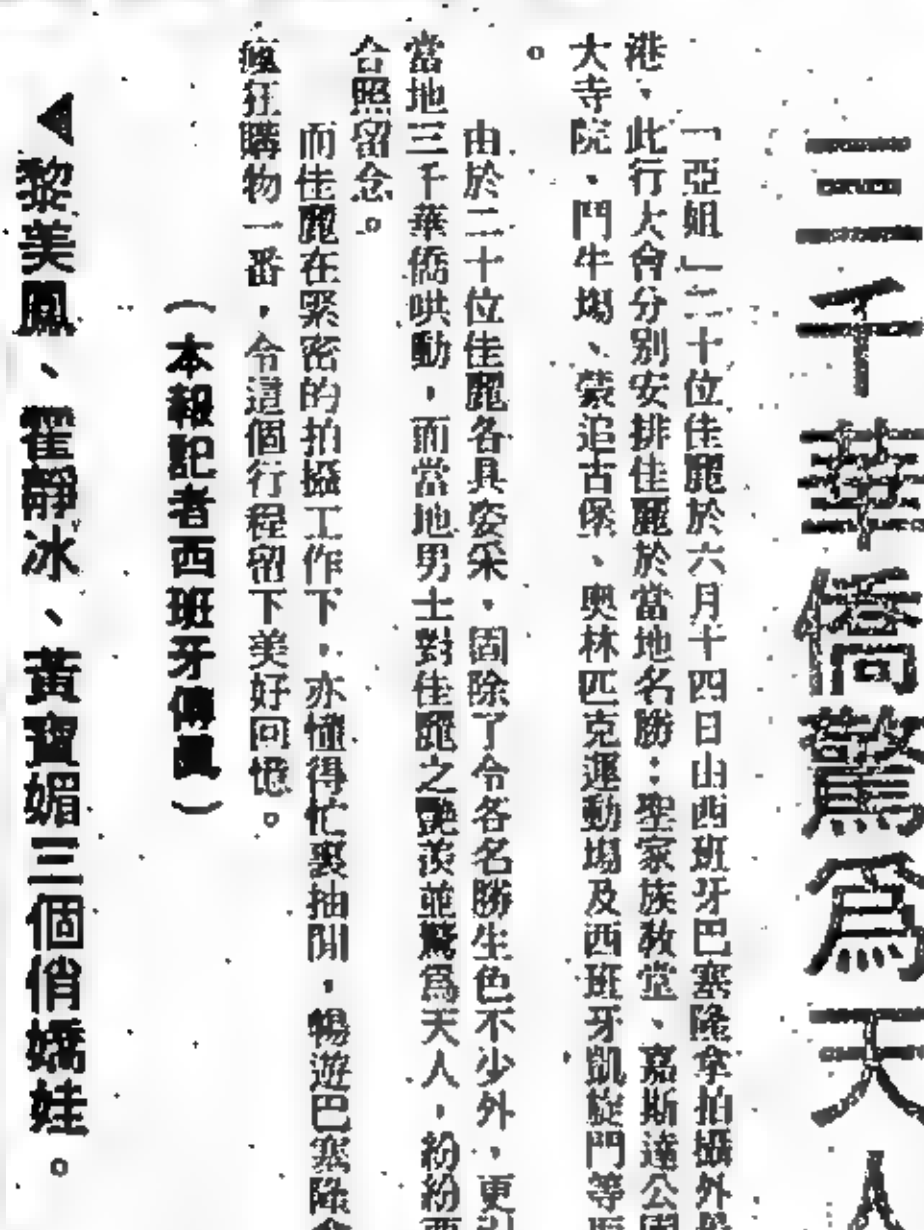 三千華僑驚爲天人
「亞姐」二十位佳麗於六月十四日由西班牙巴塞隆拿拍攝外景
港，此行大會分別安排佳麗於當地名勝：聖家族教堂、嘉斯達公園
大寺院、鬥牛場、蒙追古堡、奧林匹克運動場及西班牙凱旋門等
。
由於二十位佳麗各具姿采，固除了令各名勝生色不少外，更引
當地三千華僑哄動，而當地男士對佳麗之艷羨並驚爲天人，紛紛要
合照留念。
而佳麗在緊密的拍攝工作下，亦懂得忙裏抽閒，暢遊巴塞隆拿
瘋狂購物一番，令這個行程留下美好回憶。
（本報記者西班牙傳眞）
◀黎美鳳、霍靜冰、黃寶媚三個俏嬌娃。